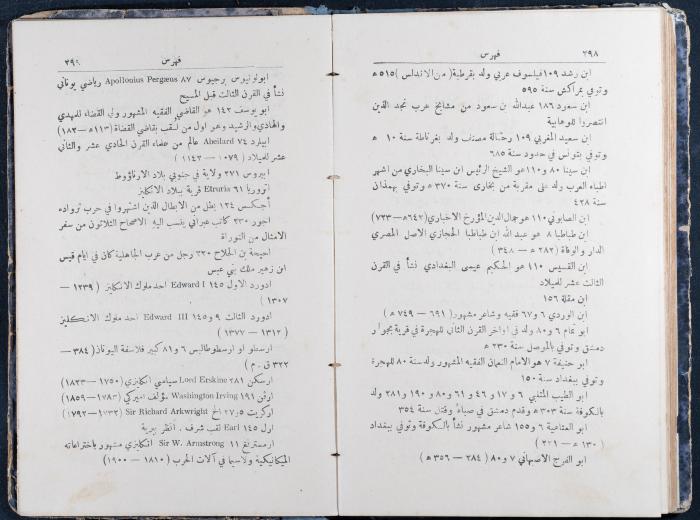 ٢٩٨
فهرس
ابن رشد ١٠٩ فيلسوف عربي ولد بقرطبة (من الاندلس) ٥١٥ ه
وتوفي بمراكش سنة ٥٩٥
ابن سعود ١٨٦ عبدالله بن سعود من مشايخ عرب نجد الذين
انتصروا للوهابية
ابن سعيد المغربي ١٠٩ رحالة مصنف ولد بغرناطة سنة ١٠ ه
وتوفي بتونس في حدود سنة ٦٨٥
ابن سينا ٨٠ و١١٠ هو الشيخ الرئيس ابن سينا البخاري من اشهر
اطباء العرب ولد على مقربة من بخارى سنة ٣٧٠ ه وتوفي بهمذان
سنة ٤٢٨
ابن الصابوني ١١٠ هو جمال الدين المؤرخ الاخباري (٦٤٢ ه — ٧٢٣)
ابن طباطبا ٨ هو عبد الله ابن طباطبا الحجازي الاصل المصري
الدار والوفاة (٢٨٢ ه — ٣٤٨)
ابن القسيس ١١٠ هو الحكيم عيسى البغدادي نشأ في القرن
الثالث عشر للميلاد
ابن مقلة ١٥٦
ابن الوردي ٦ و٦٧ فقيه وشاعر مشهور (٦٩١ — ٧٤٩ ه)
ابو تمام ٦ و٨٠ ولد في اواخر القرن الثاني للهجرة في قرية بجوار
دمشق وتوفي بالموصل سنة ٢٣٠ ه
ابو حنيفة ٧ هو الامام النعمان الفقيه المشهور ولد سنة ٨٠ للهجرة
وتوفي ببغداد سنة ١٥٠
ابو الطيب المتنبي ٦ و١٧ و٤٦ و٦١ و٨٠ و١٩٠ و٢٨١ ولد
بالكوفة سنة ٣٠٣ ه وقدم دمشق في صباه وقتل سنة ٣٥٤
ابو العتاهية ٦ و١٥٥ شاعر مشهور نشأ بالكوفة وتوفي ببغداد
(١٣٠ ه — ٢٢١)
ابو الفرج الاصبهاني ٧ و٨٠ (٢٨٤ — ٣٥٦ ه)
فهرس
ابولونيوس برجيوس ٨٧ Apollonius Pergæus رياضي يوناني
نشأ في القرن الثالث قبل المسيح
ابو يوسف ١٤٢ هو القاضي الفقيه المشهور ولي القضاء للمهدي
والهادي والرشيد وهو اول من لقب بقاضي القضاة (١١٣ ه — ١٨٢)
ابيلرد ٧٤ Abeilard عالم من علماء القرن الحادي عشر والثاني
عشر للميلاد (١٠٧٩ — ١١٤٢)
ابيروس ٢٧١ ولاية في جنوبي بلاد الارناؤوط
اتروريا ٦١ Etruria قرية ببلاد الانكليز
أجكس ١٢٤ بطل من الابطال الذين اشتهروا في حرب تروادة
اجور ٢٣٠ كاتب عبراني ينسب اليه الاصحاح الثلاثون من سفر
الامثال من التوراة
احيحة بن الجلاح ٢٢٠ رجل من عرب الجاهلية كان في ايام قيس
ابن زهير ملك بني عبس
ادورد الاول ١٤٥ Edward I احد ملوك الانكليز (١٢٣٩ —
١٣٠٧)
ادورد الثالث ٩ و١٤٥ Edward III احد ملوك الانكليز
(١٣١٢ — ١٣٧٧)
ارسطو او ارسطوطاليس ٦ و٨١ كبير فلاسفة اليونان (٣٨٤ —
٣٢٢ ق.م)
ارسكن ٢٨١ Lord Erskine سياسي انكليزي (١٧٥٠ — ١٨٢٣)
ارفن ١٩١ Washington Irving مؤلف اميركي (١٧٨٣ — ١٨٥٩)
اركريت ٥ و٢٧ الخ Sir Richard Arkwright (١٧٣٢ — ١٧٩٢)
ارل ١٤٥ Earl لقب شرف. انظر بيرية
ارمسترنغ ١١ Sir W. Armstrong انكليزي مشهور باختراعاته
الميكانيكية ولاسيما في آلات الحرب (١٨١٠ — ١٩٠٠)